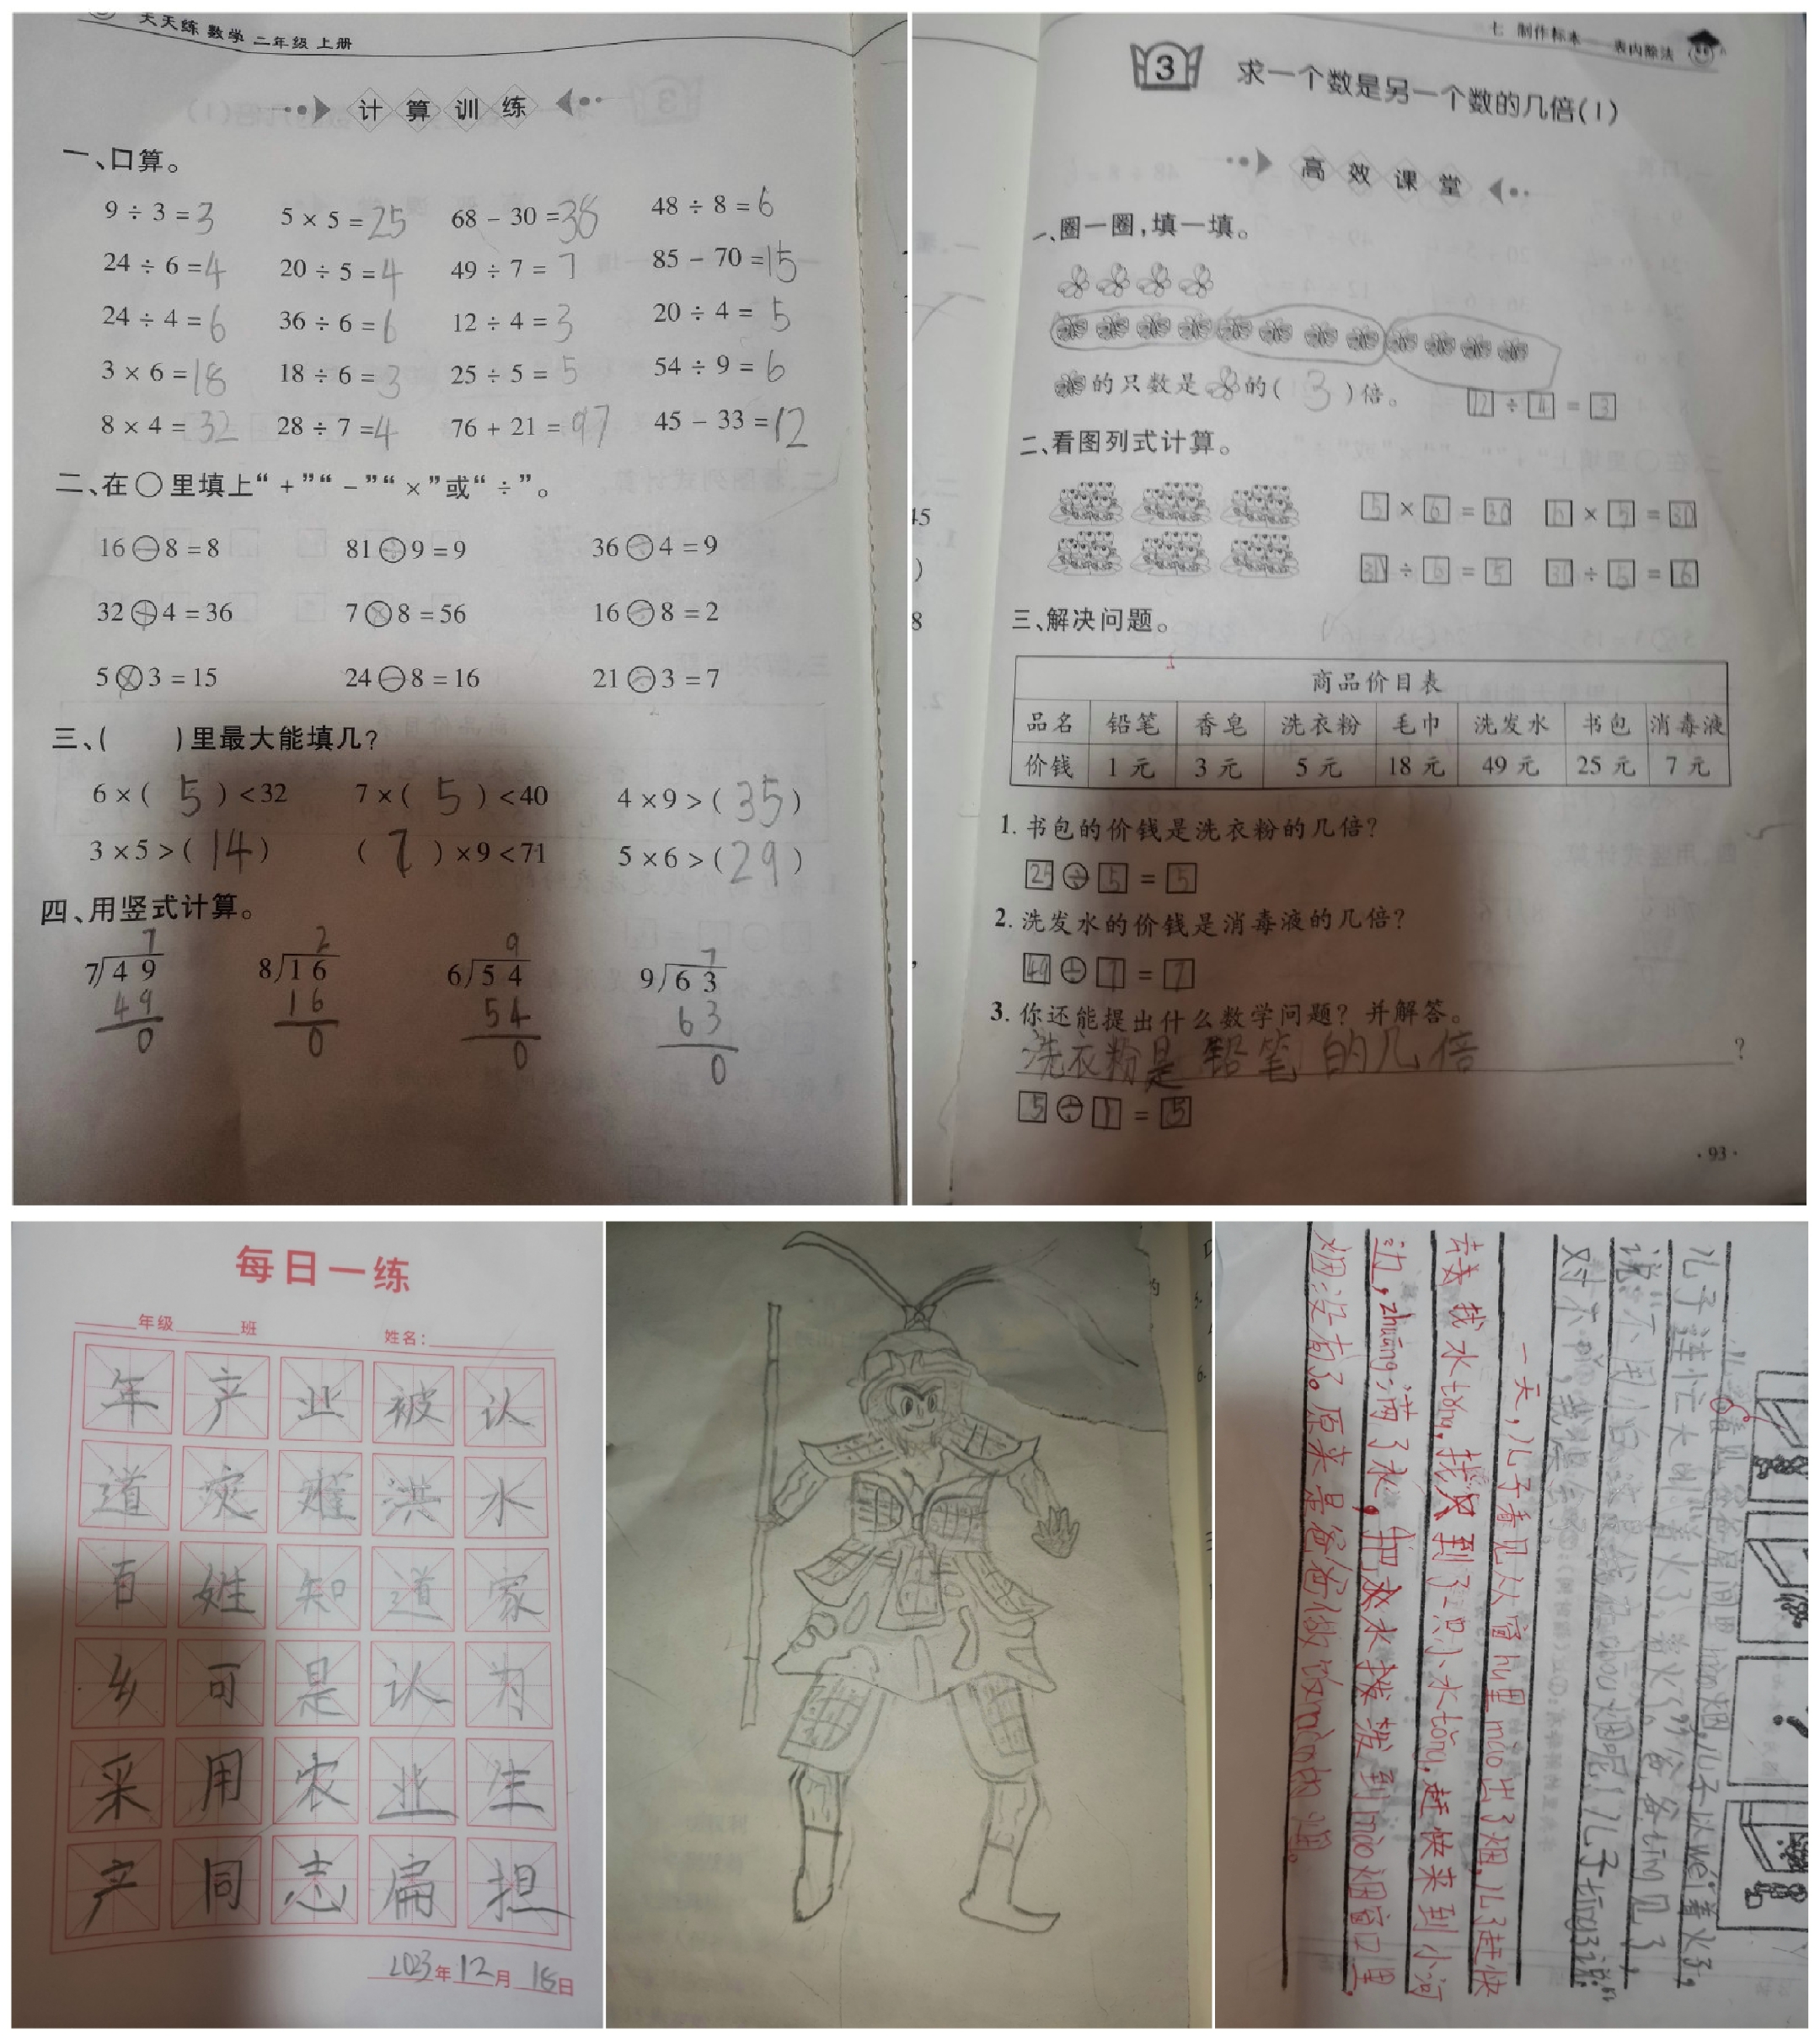 天天练 数学 二年级 上册
计算训练
一、口算。
9 ÷ 3 = 3 5 × 5 = 25 68 - 30 = 38 48 ÷ 8 = 6
24 ÷ 6 = 4 20 ÷ 5 = 4 49 ÷ 7 = 7 85 - 70 = 15
24 ÷ 4 = 6 36 ÷ 6 = 6 12 ÷ 4 = 3 20 ÷ 4 = 5
3 × 6 = 18 18 ÷ 6 = 3 25 ÷ 5 = 5 54 ÷ 9 = 6
8 × 4 = 32 28 ÷ 7 = 4 76 + 21 = 97 45 - 33 = 12
二、在○里填上“+”“-”“×”或“÷”。
16 - 8 = 8 81 ÷ 9 = 9 36 ÷ 4 = 9
32 + 4 = 36 7 × 8 = 56 16 ÷ 8 = 2
5 × 3 = 15 24 - 8 = 16 21 ÷ 3 = 7
三、( )里最大能填几?
6 × ( 5 ) < 32 7 × ( 5 ) < 40 4 × 9 > ( 35 )
3 × 5 > ( 14 ) ( 7 ) × 9 < 71 5 × 6 > ( 29 )
四、用竖式计算。
7 2 9 7
7)49 8)16 6)54 9)63
49 16 54 63
0 0 0 0
七 制作标本——表内除法
3 求一个数是另一个数的几倍(1)
高效课堂
一、圈一圈,填一填。
的只数是 的( 3 )倍。 12 ÷ 4 = 3
二、看图列式计算。
5 × 6 = 30 6 × 5 = 30
30 ÷ 6 = 5 30 ÷ 5 = 6
三、解决问题。
商品价目表
品名 铅笔 香皂 洗衣粉 毛巾 洗发水 书包 消毒液
价钱 1元 3元 5元 18元 49元 25元 7元
1. 书包的价钱是洗衣粉的几倍?
25 ÷ 5 = 5
2. 洗发水的价钱是消毒液的几倍?
49 ÷ 7 = 7
3. 你还能提出什么数学问题? 并解答。
洗衣粉是铅笔的几倍?
5 ÷ 1 = 5
·93·
每日一练
年级 班 姓名:
年产业被认
道灾难洪水
百姓知道家
乡可是认为
采用农业生
产同志扁担
2023年12月18日
儿子连忙大叫:“着火了,着火了。”爸爸tīng见了
一天,儿子看见从窗hu里mào出了烟,儿子赶快
去找水tǒng,找到了一只小水tǒng,赶快来到小河
边,zhuāng满了水,把水拨到mào烟窗口里,
烟没有了。原来是爸爸做饭mào的烟。